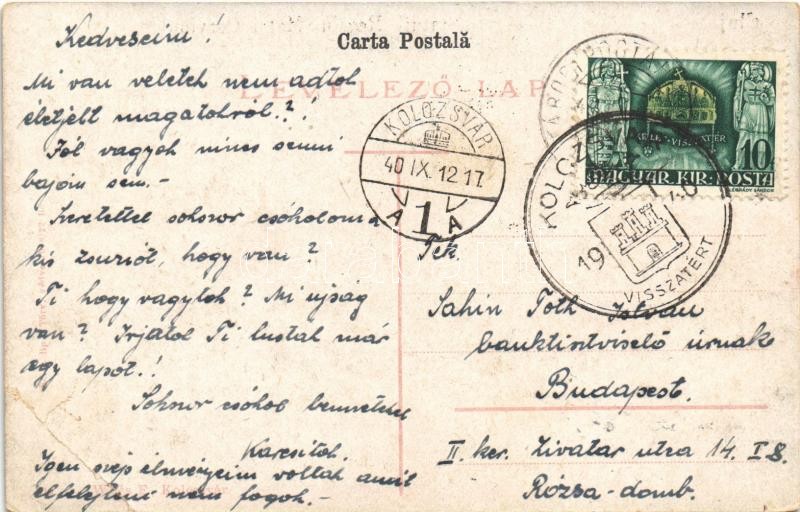 Carta Postală
LEVELEZŐ-LAP
Kedveseim!
Mi van veletek nem adtok
életjelt magatokról?!
Jól vagyok nincs semmi
bajom sem.-
Keretettel sokszor csókolom a
kis Zsuzsit, hogy van?
Ti hogy vagytok? Mi ujság
van? Irjatok Ti lusták már
egy lapot!
Sokszor csókol benneteket
Karcsitok.
Igen szép élményeim voltak amit
elfelejteni nem fogok.-
KOLOZSVÁR
40 IX. 12 17
A 1 A
KELET VISSZATÉR
10 f
MAGYAR KIR. POSTA
LÉGRÁDY SÁNDOR
KOLOZSVÁR
1940
VISSZATÉRT
Tek.
Sahin Tóth István
banktisztviselő úrnak
Budapest.
II. ker. Zivatar utca 14. I 8.
Rózsa-domb.